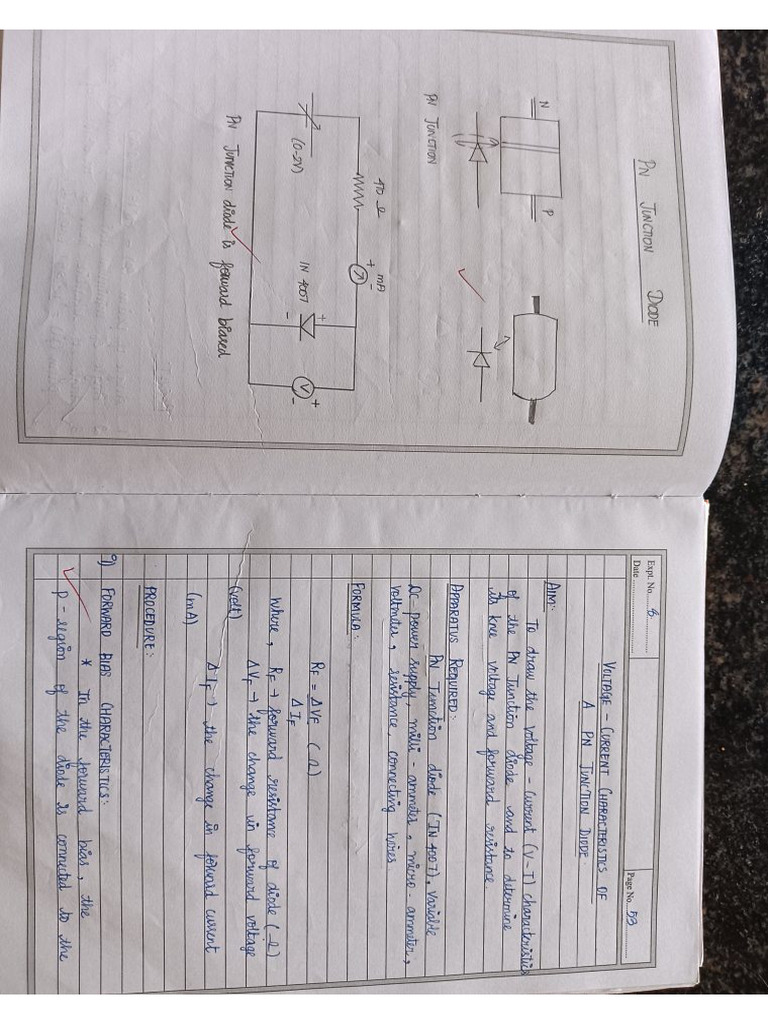 PN JUNCTION DIODE
N
P
PN JUNCTION
470 Ω
+ mA
(0-2V)
IN 400T
+
-
V
+
-
PN Junction diode is forward biased
Expt. No. 6
Date
Page No. 53
VOLTAGE - CURRENT CHARACTERISTICS OF
A PN JUNCTION DIODE:
AIM:
To draw the voltage - current (V-I) characteristics
of the PN Junction diode and to determine
its knee voltage and forward resistance
APPARATUS REQUIRED:
PN Junction diode (IN 400T), variable
DC-power supply, milli - ammeter, micro - ammeter,
voltmeter, resistance, connecting wires
FORMULA:
RF = ΔVF (Ω)
ΔIF
Where, RF → forward resistance of diode (Ω)
ΔVF → the change in forward voltage
(volt)
ΔIF → the change in forward current
(mA)
PROCEDURE:
i) FORWARD BIAS CHARACTERISTICS:
* In the forward bias, the
P - region of the diode is connected to the